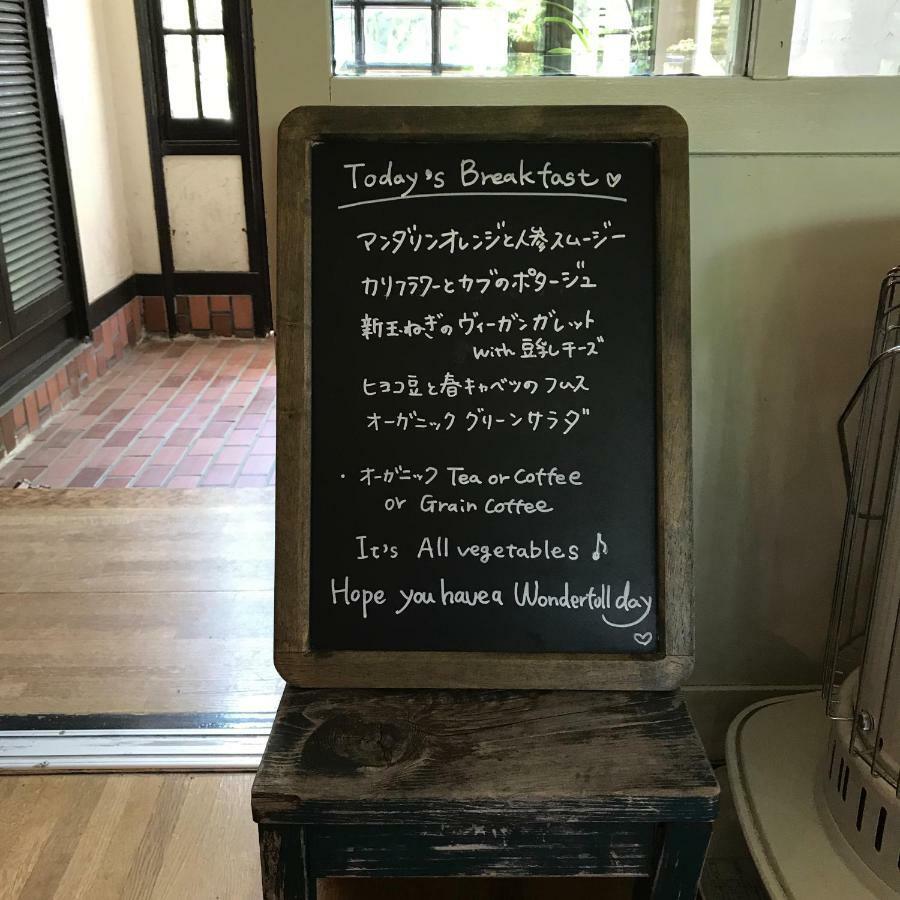 Today's Breakfast ♡
マンダリンオレンジと人参スムージー
カリフラワーとカブのポタージュ
新玉ねぎのヴィーガンガレット
with 豆乳チーズ
ヒヨコ豆と春キャベツのフムス
オーガニック グリーンサラダ
・オーガニック Tea or Coffee
or Grain Coffee
It's All vegetables ♪
Hope you have a Wonderfull day
♡